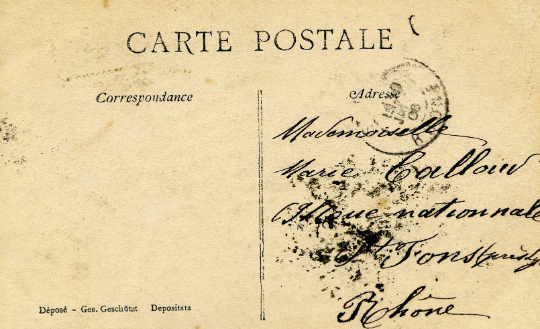 CARTE POSTALE
Correspondance
Adresse
Mademoiselle
Marie
nationnale
St Fons
Rhône
Déposé - Ges. Geschützt Depositata